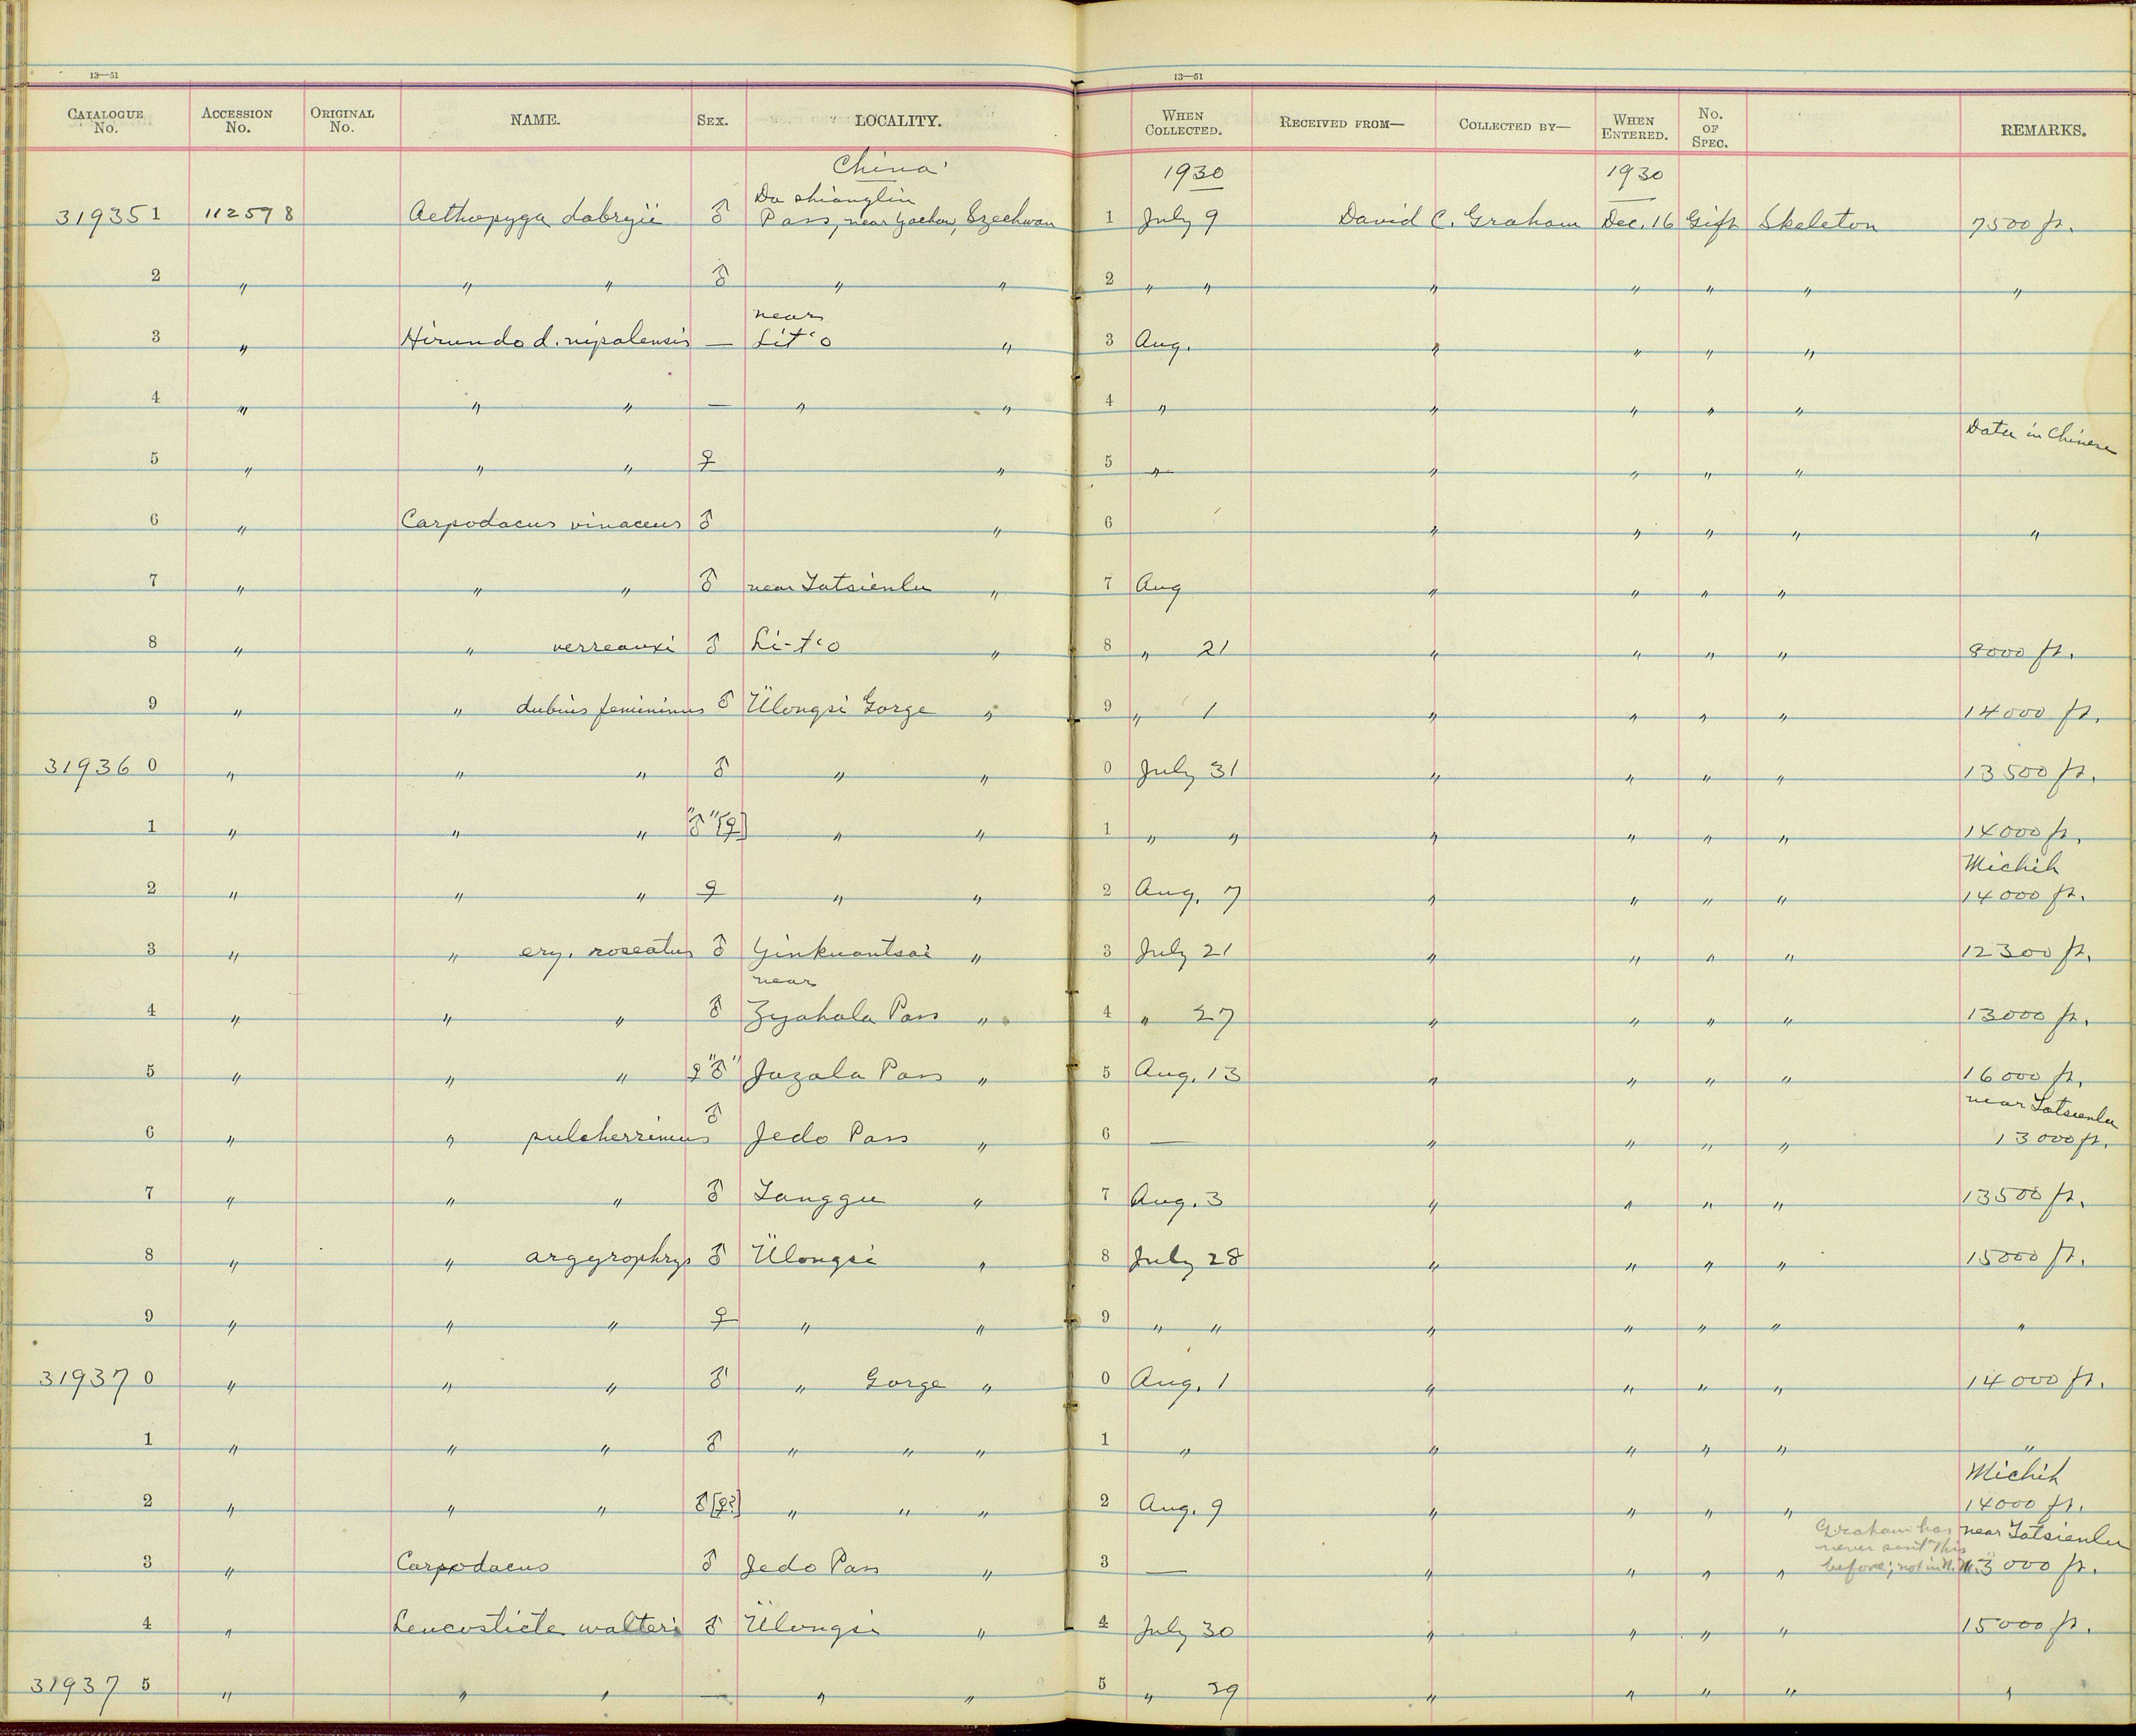 13—51 13—51
CATALOGUE No. ACCESSION No. ORIGINAL No. NAME. SEX. LOCALITY. WHEN COLLECTED. RECEIVED FROM— COLLECTED BY— WHEN ENTERED. NO. OF SPEC. REMARKS.
China 1930 1930
Da shianglin
319351 112598 Aethopyga dabryii ♂ Pass, near Yachow, Szechwan 1 July 9 David C. Graham Dec. 16 Gift Skeleton 7500 ft.
2 " " " ♂ " " 2 " " " " " " "
near
3 " Hirundo d. nipalensis — Lit'o " 3 Aug. " " " "
4 " " " — " " 4 " " " " "
Date in Chinese
5 " " " ♀ " 5 " " " " "
6 " Carpodacus vinaceus ♂ " 6 " " " " "
7 " " " ♂ near Tatsienlu " 7 Aug " " " "
8 " " verreauxi ♂ Li-t'o " 8 " 21 " " " " 8000 ft.
9 " " dubius femininus ♂ Ülongsi Gorge " 9 " 1 " " " " 14000 ft.
319360 " " " ♂ " " 0 July 31 " " " " 13500 ft.
1 " " " "♂" [♀] " " 1 " " " " " " 14000 ft.
Michih
2 " " " ♀ " " 2 Aug. 7 " " " " 14000 ft.
3 " " ery. roseatus ♂ Yinkuantsai " 3 July 21 " " " " 12300 ft.
near
4 " " " ♂ Zyahala Pass " 4 " 27 " " " " 13000 ft.
5 " " " ♀ "♂" Jazala Pass " 5 Aug. 13 " " " " 16000 ft.
near Tatsienlu
6 " " pulcherrimus ♂ Jedo Pass " 6 — " " " " 13000 ft.
7 " " " ♂ Tanggu " 7 Aug. 3 " " " " 13500 ft.
8 " " argyrophrys ♂ Ülongsi " 8 July 28 " " " " 15000 ft.
9 " " " ♀ " " 9 " " " " " " "
319370 " " " ♂ " Gorge " 0 Aug. 1 " " " " 14000 ft.
1 " " " ♂ " " " 1 " " " " " "
Michih
2 " " " ♂ [♀?] " " " 2 Aug. 9 " " " " 14000 ft.
Graham has near Tatsienlu
never sent this
3 " Carpodacus ♂ Jedo Pass " 3 — " " " " before; not in N.M. 13000 ft.
4 " Leucosticte walteri ♂ Ülongsi " 4 July 30 " " " " 15000 ft.
319375 " " " — " " 5 " 29 " " " " "